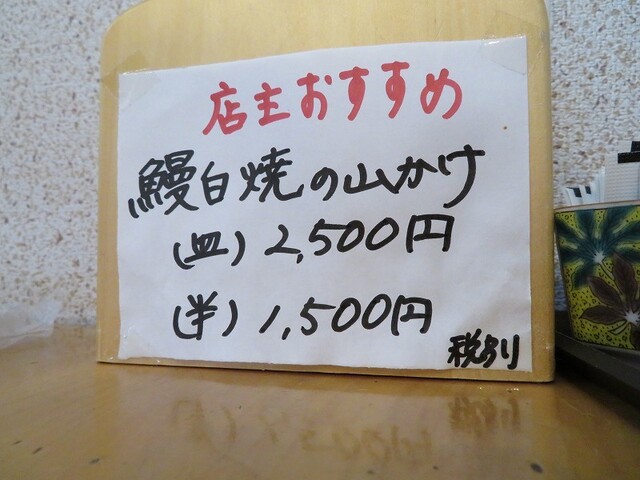 店主おすすめ
鰻白焼の山かけ
(皿) 2,500円
(半) 1,500円
税別